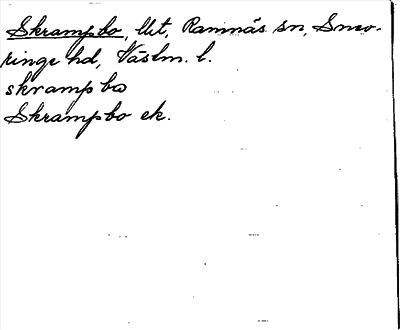 Skrampbo, lht, Ramnäs sn, Snev-
ringe hd, Västm. l.
skrampbo
Skrampbo ek.